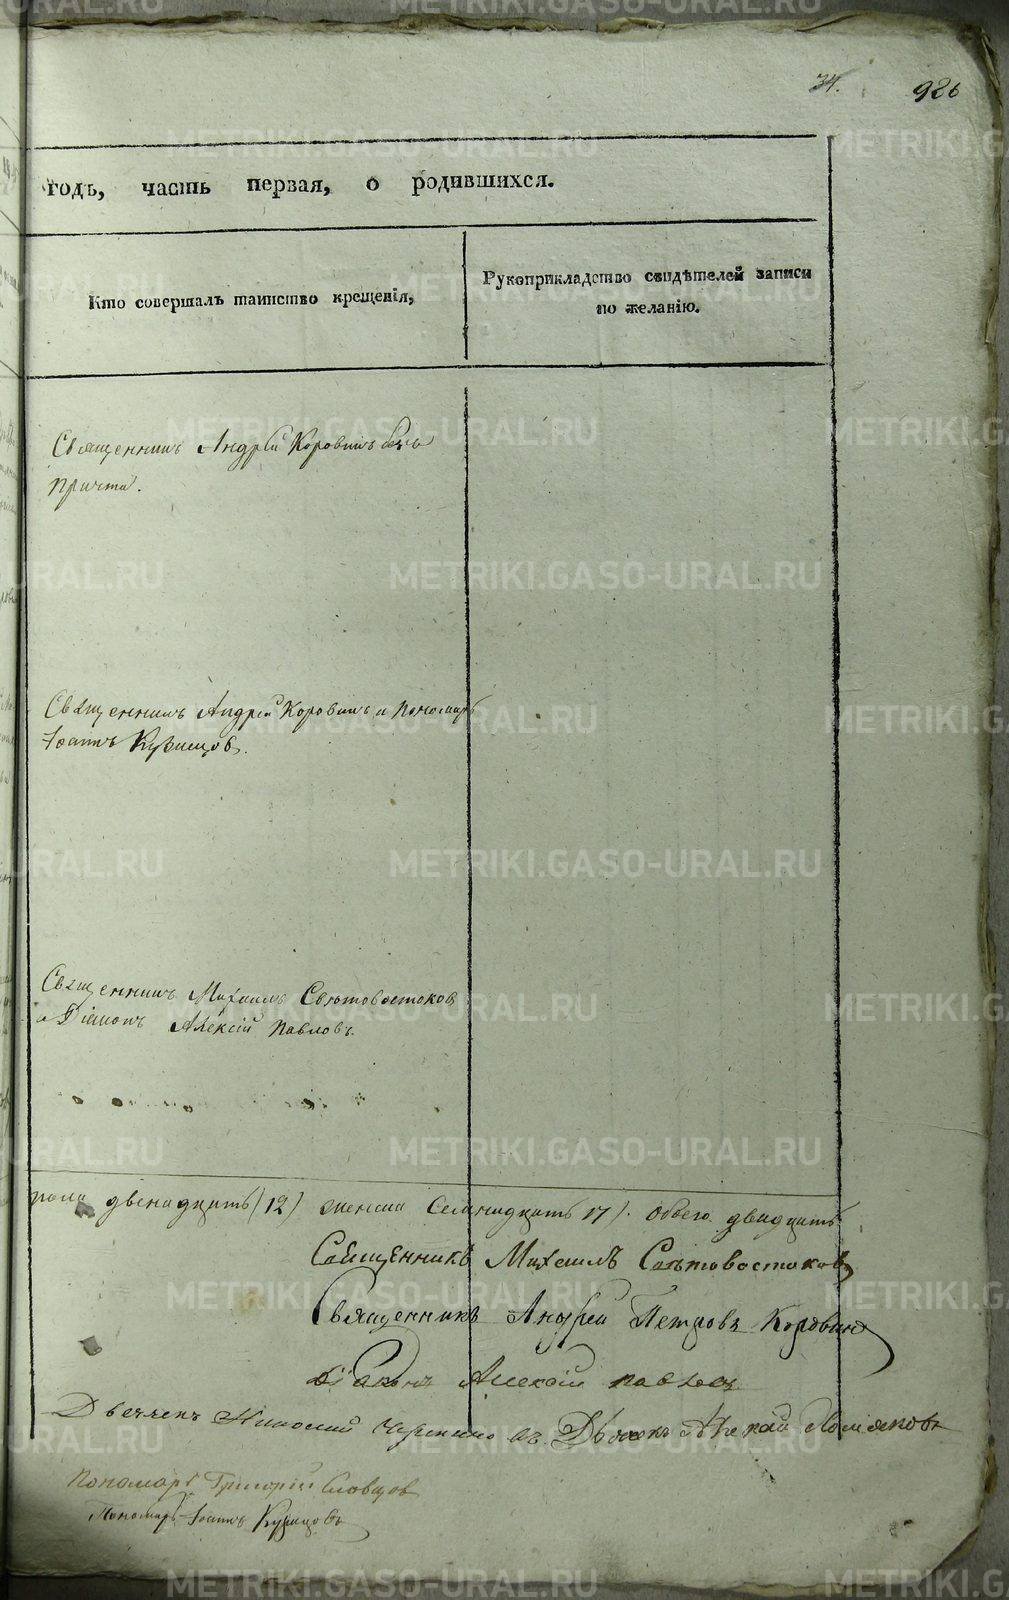 34.
926
годъ, часть первая, о родившихся.
Кто совершалъ таинство крещенія,
Рукоприкладство свидѣтелей записи
по желанію.
Священникъ Андрей Коровинъ безъ
Причта.
Священникъ Андрей Коровинъ и Пономарь
Іоаннъ Кузнецовъ.
Священникъ Михаилъ Свѣтовостоковъ
и Діаконъ Алексій Павловъ.
пола двенадцать (12) женска Семнадцать 17). Обоего двадцать
Священникъ Михаилъ Свѣтовостоковъ
Священникъ Андрей Петровъ Коровинъ
Діаконъ Алексій Павловъ
Дьячекъ Николай Дьячекъ
Пономарь Григорій Словцовъ
Пономарь Іоаннъ Кузнецовъ
METRIKI.GASO-URAL.RU